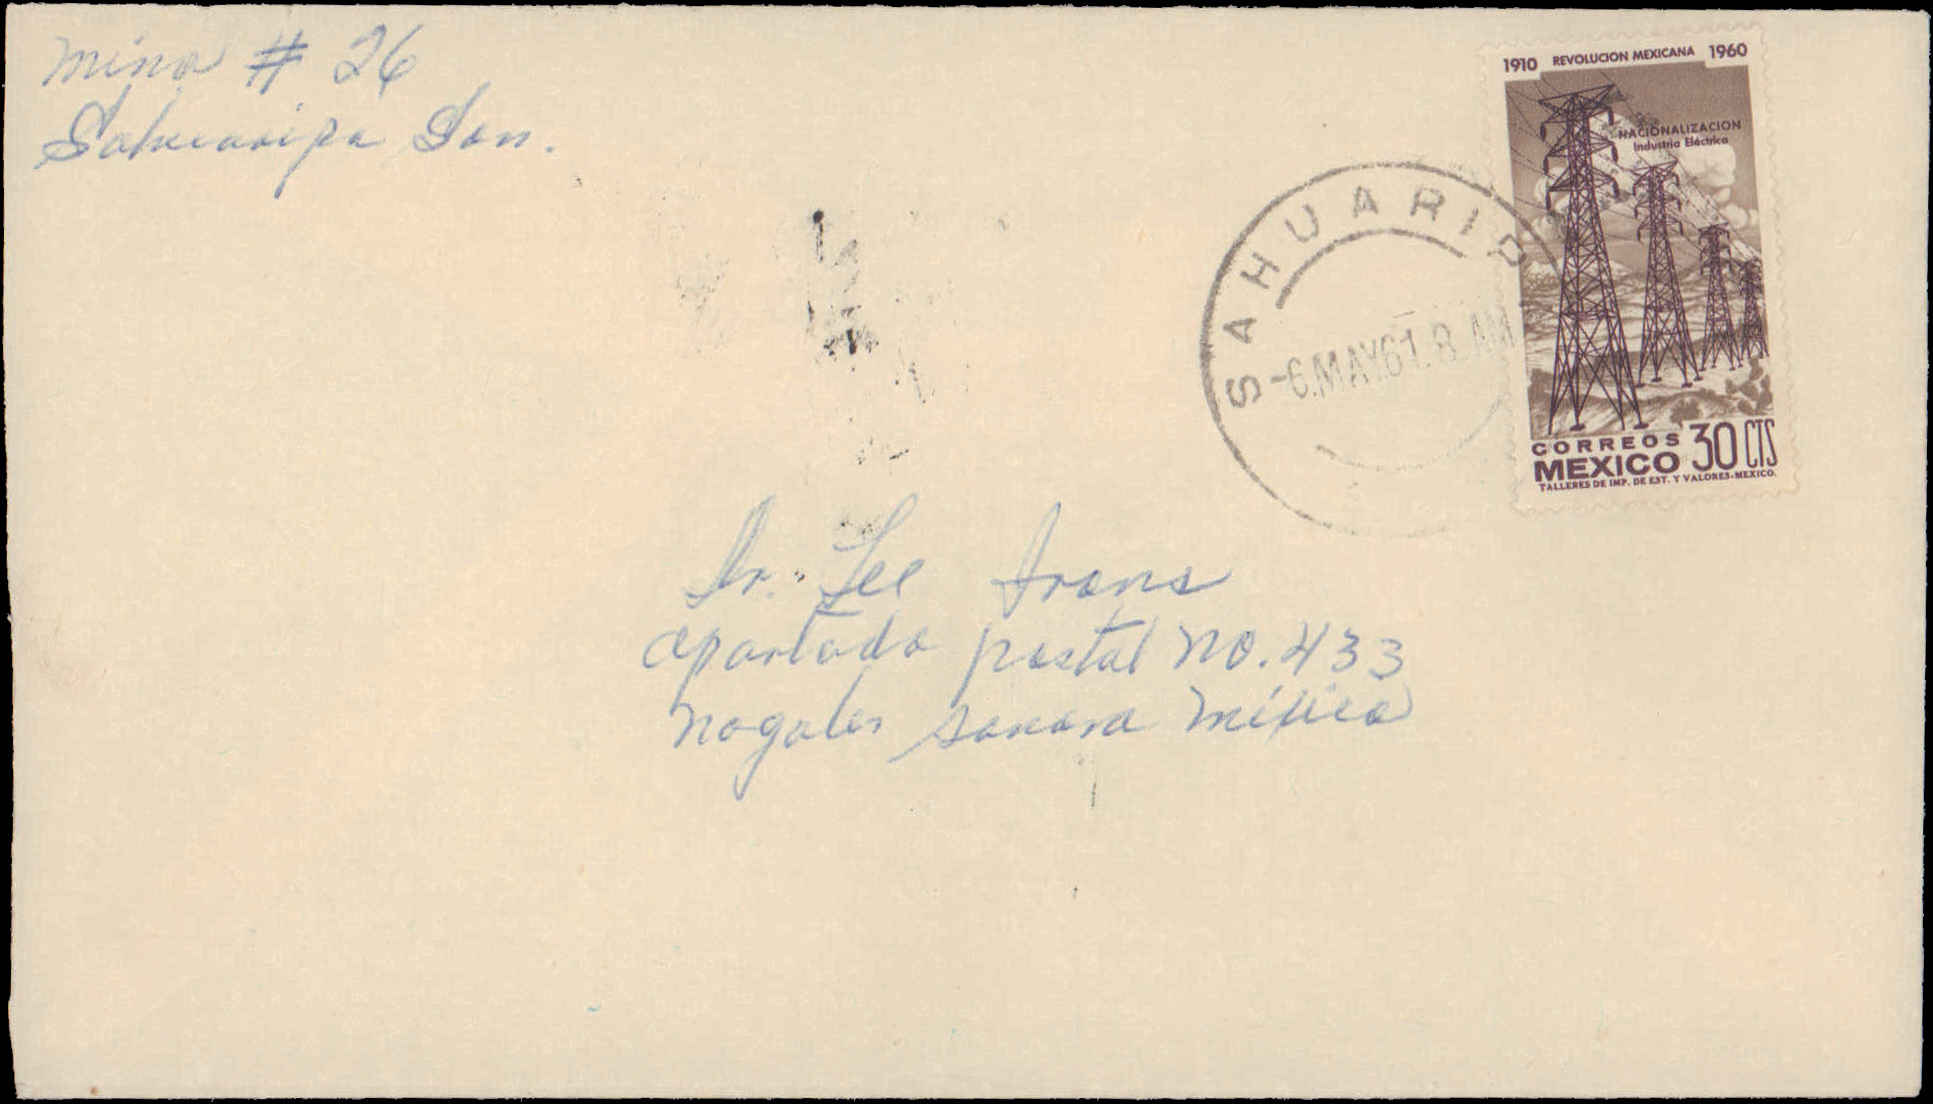 Mina # 26
Sahuaripa Son.
1910 REVOLUCION MEXICANA 1960
NACIONALIZACION
Industria Eléctrica
SAHUARIP
-6.MAY.61.8 AM
CORREOS
MEXICO 30 CTS
TALLERES DE IMP. DE EST. Y VALORES-MEXICO.
Sr. Lee Irans
apartado postal no. 433
nogales sonora méxico